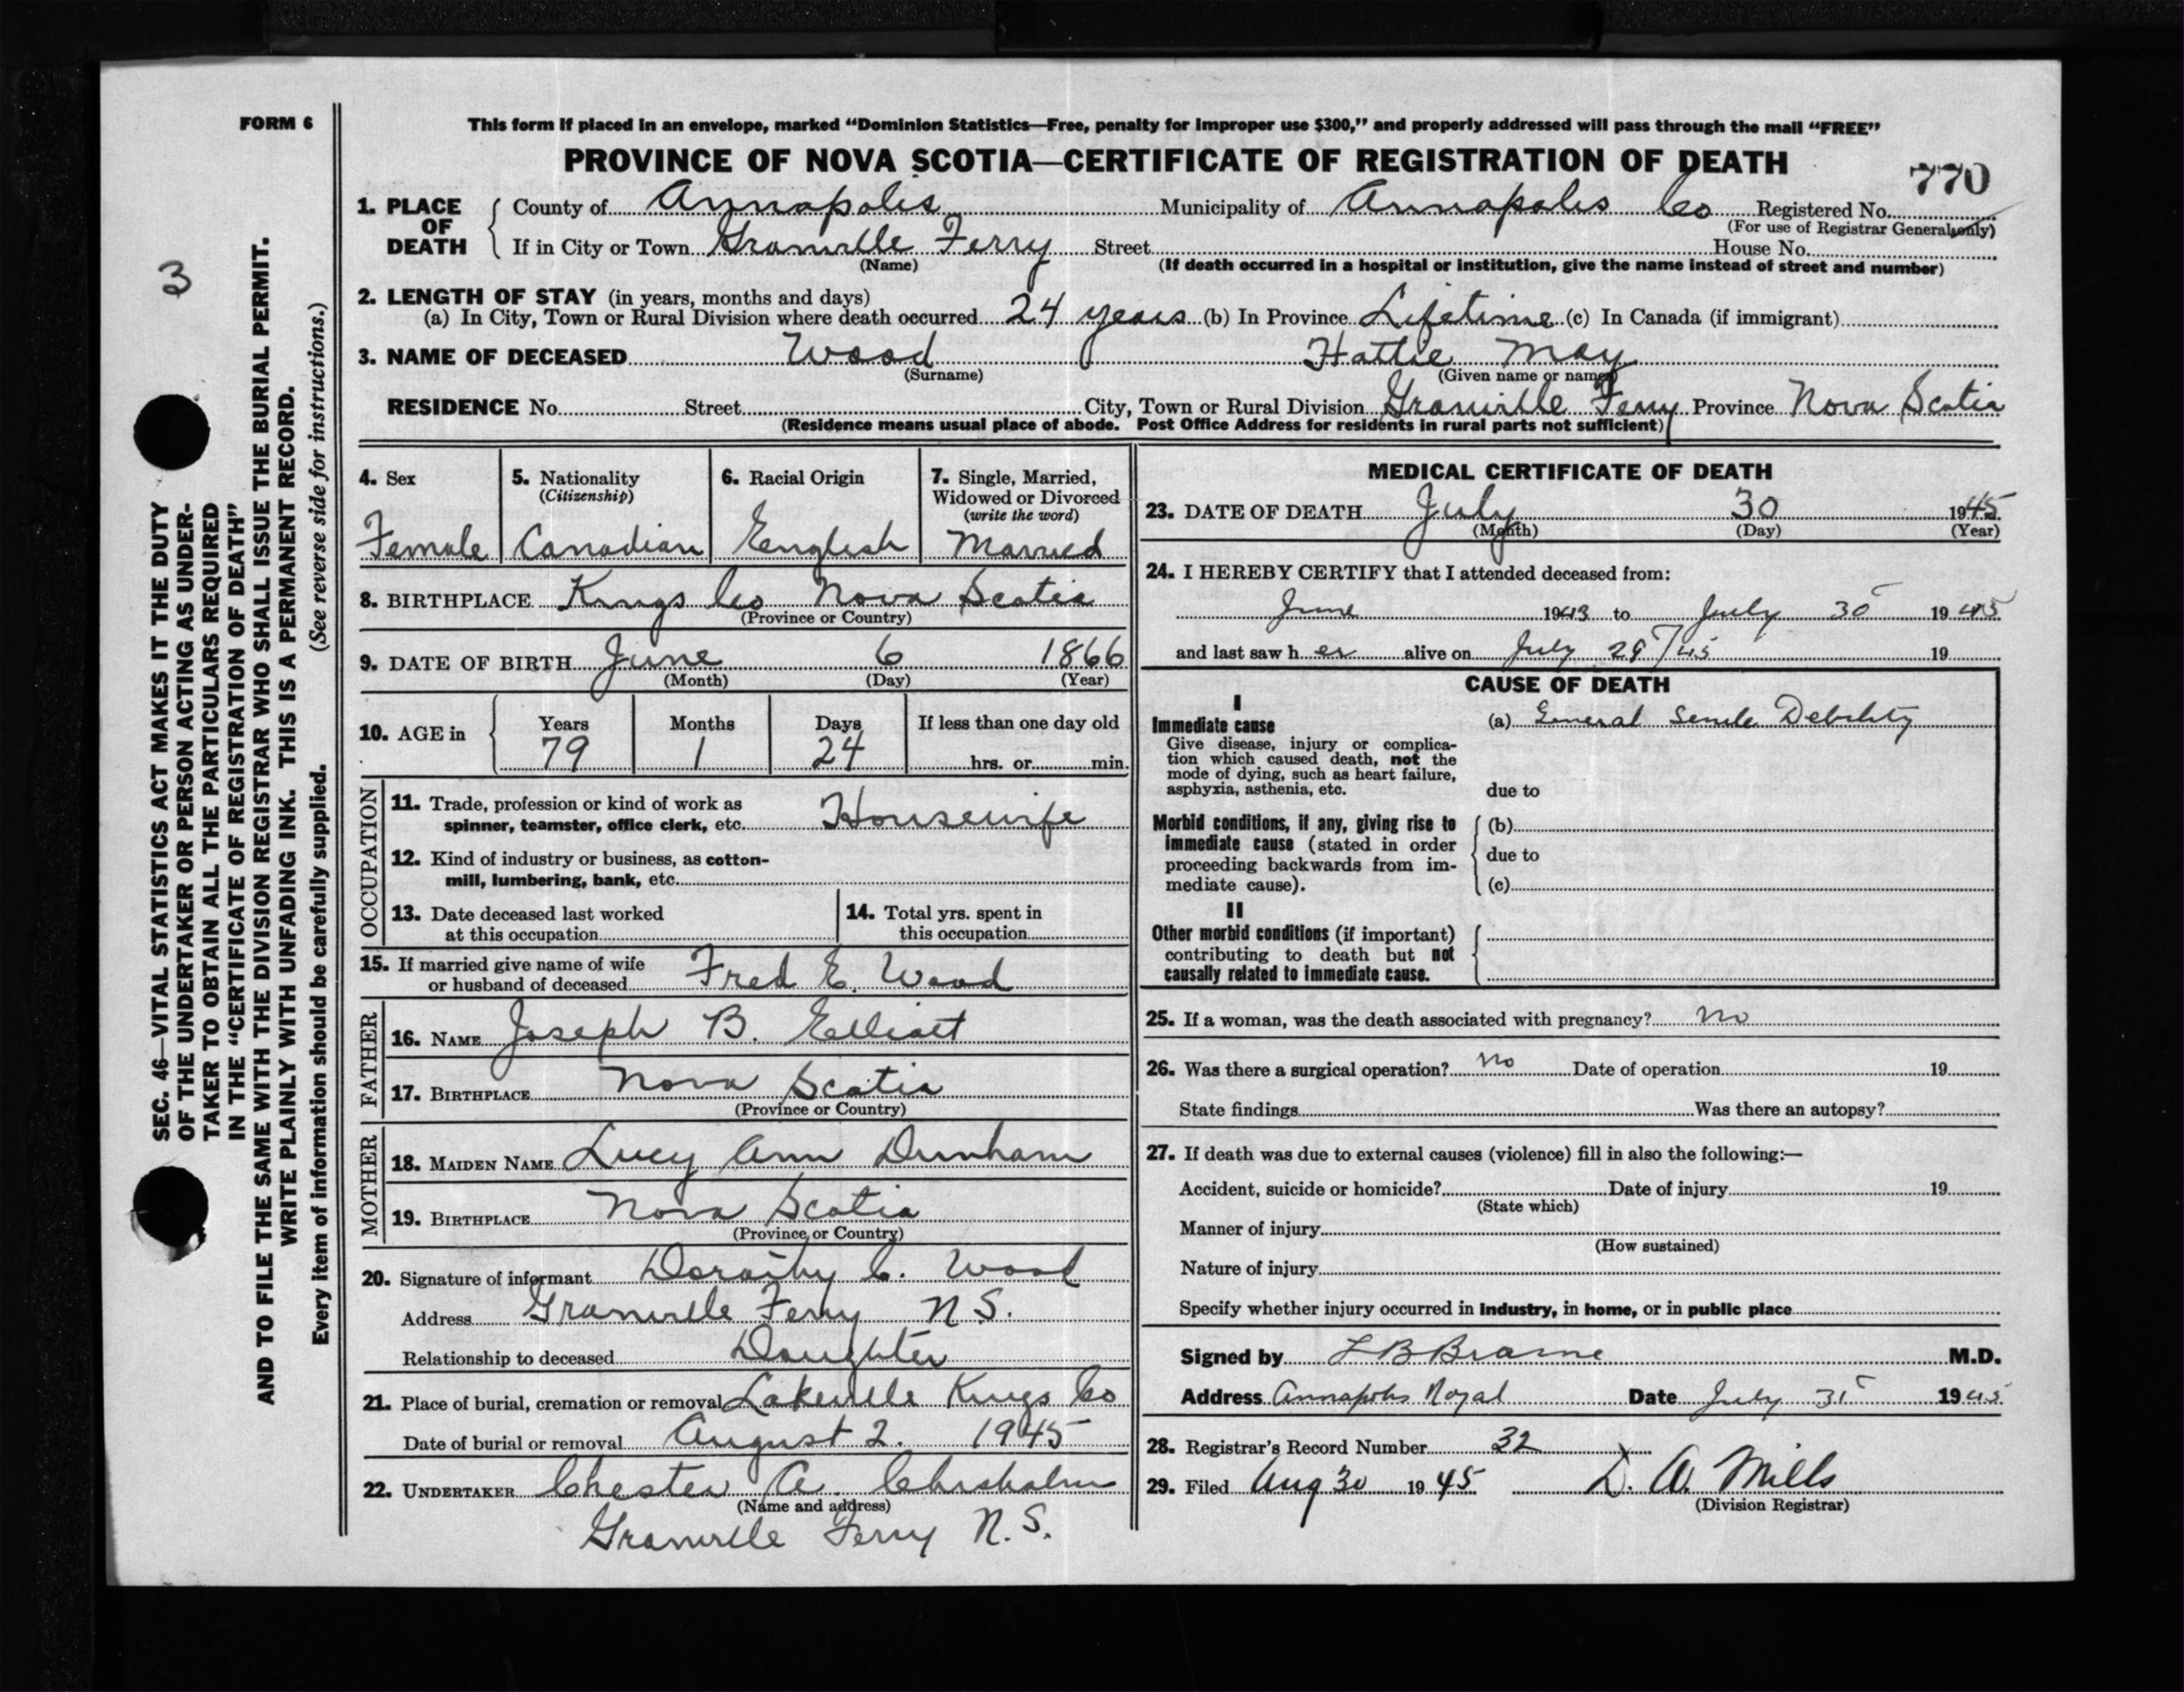 FORM 6
This form if placed in an envelope, marked "Dominion Statistics—Free, penalty for improper use $300," and properly addressed will pass through the mail "FREE"
PROVINCE OF NOVA SCOTIA—CERTIFICATE OF REGISTRATION OF DEATH
770
1. PLACE OF DEATH
County of Annapolis Municipality of Annapolis Co Registered No.
(For use of Registrar General only)
If in City or Town Granville Ferry Street House No.
(Name) (If death occurred in a hospital or institution, give the name instead of street and number)
2. LENGTH OF STAY (in years, months and days)
(a) In City, Town or Rural Division where death occurred 24 years (b) In Province Lifetime (c) In Canada (if immigrant)
3. NAME OF DECEASED Wood Hattie May
(Surname) (Given name or names)
RESIDENCE No. Street City, Town or Rural Division Granville Ferry Province Nova Scotia
(Residence means usual place of abode. Post Office Address for residents in rural parts not sufficient)
4. Sex
Female
5. Nationality
(Citizenship)
Canadian
6. Racial Origin
English
7. Single, Married,
Widowed or Divorced
(write the word)
Married
8. BIRTHPLACE Kings Co Nova Scotia
(Province or Country)
9. DATE OF BIRTH June 6 1866
(Month) (Day) (Year)
10. AGE in
Years Months Days If less than one day old
79 1 24 hrs. or min.
OCCUPATION
11. Trade, profession or kind of work as
spinner, teamster, office clerk, etc. Housewife
12. Kind of industry or business, as cotton-
mill, lumbering, bank, etc.
13. Date deceased last worked
at this occupation
14. Total yrs. spent in
this occupation
15. If married give name of wife
or husband of deceased Fred E. Wood
FATHER
16. NAME Joseph B. Elliott
17. BIRTHPLACE Nova Scotia
(Province or Country)
MOTHER
18. MAIDEN NAME Lucy Ann Dunham
19. BIRTHPLACE Nova Scotia
(Province or Country)
20. Signature of informant Dorothy C. Wood
Address Granville Ferry N S.
Relationship to deceased Daughter
21. Place of burial, cremation or removal Lakeville Kings Co
Date of burial or removal August 2. 1945
22. UNDERTAKER Chester A. Chisholm
(Name and address)
Granville Ferry N. S.
MEDICAL CERTIFICATE OF DEATH
23. DATE OF DEATH July 30 1945
(Month) (Day) (Year)
24. I HEREBY CERTIFY that I attended deceased from:
June 1943 to July 30 1945
and last saw her alive on July 29/45 19
CAUSE OF DEATH
I
Immediate cause
Give disease, injury or complica-
tion which caused death, not the
mode of dying, such as heart failure,
asphyxia, asthenia, etc.
(a) General Senile Debility
due to
Morbid conditions, if any, giving rise to
immediate cause (stated in order
proceeding backwards from im-
mediate cause).
(b)
due to
(c)
II
Other morbid conditions (if important)
contributing to death but not
causally related to immediate cause.
25. If a woman, was the death associated with pregnancy? no
26. Was there a surgical operation? no Date of operation 19
State findings Was there an autopsy?
27. If death was due to external causes (violence) fill in also the following:—
Accident, suicide or homicide? Date of injury 19
(State which)
Manner of injury
(How sustained)
Nature of injury
Specify whether injury occurred in industry, in home, or in public place
Signed by M.D.
Address Annapolis Royal Date July 31 1945
28. Registrar's Record Number 32
29. Filed Aug 30 1945 D. A. Mills
(Division Registrar)
3
SEC. 46—VITAL STATISTICS ACT MAKES IT THE DUTY
OF THE UNDERTAKER OR PERSON ACTING AS UNDER-
TAKER TO OBTAIN ALL THE PARTICULARS REQUIRED
IN THE "CERTIFICATE OF REGISTRATION OF DEATH"
AND TO FILE THE SAME WITH THE DIVISION REGISTRAR WHO SHALL ISSUE THE BURIAL PERMIT.
WRITE PLAINLY WITH UNFADING INK. THIS IS A PERMANENT RECORD.
Every item of information should be carefully supplied. (See reverse side for instructions.)